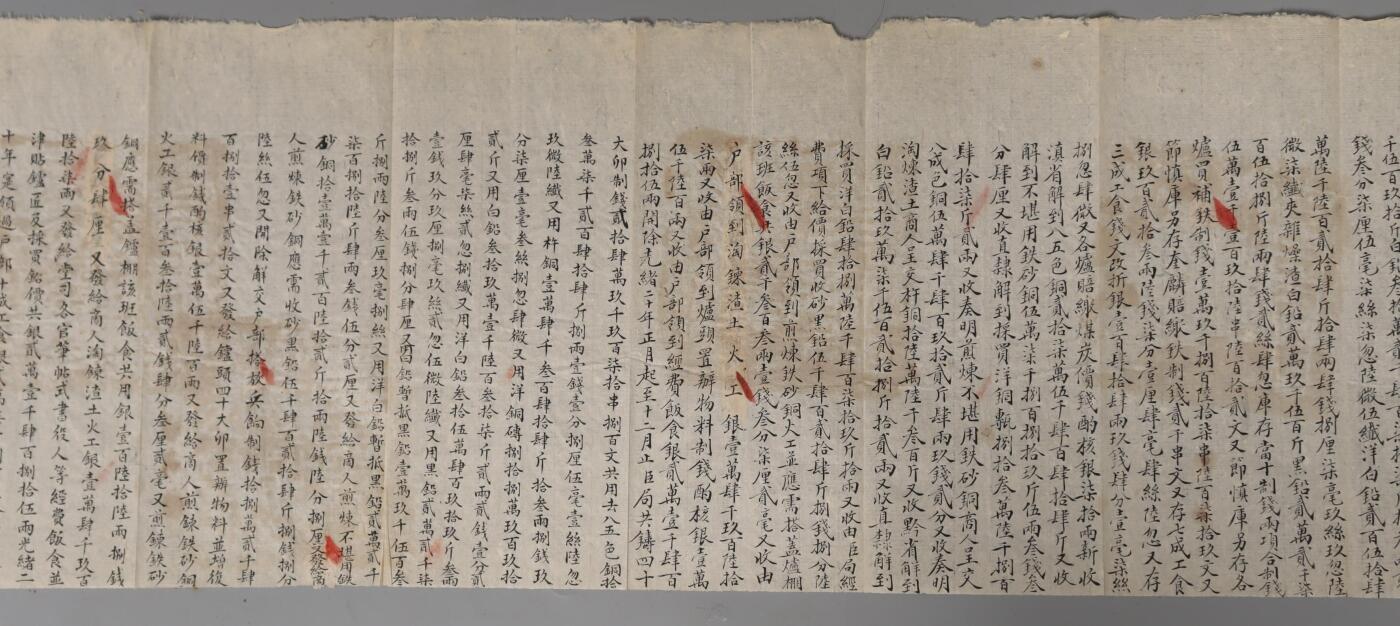 錢叁分柒厘伍毫柒絲柒忽陸微伍纖洋白鉛貳百伍拾肆
萬陸千陸百貳拾肆斤拾肆兩肆錢捌厘柒毫玖絲玖忽陸
微柒纖夾雜燥渣白鉛貳萬玖千伍百斤黑鉛貳萬貳千柒
百伍拾捌斤陸兩肆錢貳絲肆忽庫存當十制錢兩項合制錢
伍萬壹千壹百玖拾陸串陸百拾貳文又節慎庫另存各
爐罰補鉄制錢壹萬玖千捌百陸拾柒串陸百柒拾玖文又
節慎庫另存奎麟賠繳鉄制錢貳千串文又存七成工食
銀玖百貳拾叁兩陸錢柒分壹厘肆毫肆絲陸忽又存
三成工食錢文改折銀壹百肆拾肆兩玖錢肆分壹毫柒絲
捌忽肆微又各爐賠繳煤炭價錢酌核銀柒拾兩新收
滇省解到八五色銅貳拾柒萬伍千肆百肆拾肆斤又收
解到不堪用鉄砂銅伍萬柒千捌百捌拾玖斤伍兩叁錢叁
分肆厘又收直隸解到採買洋銅甎捌拾叁萬陸千捌百
肆拾柒斤貳兩又收奏明煎煉不堪用鉄砂銅商人呈交
八成色銅伍萬肆千肆百玖拾貳斤肆兩玖錢貳分又收奏明
淘煉渣土商人呈交杵銅拾陸萬陸千叁百斤又收黔省解到
白鉛貳拾玖萬柒千伍百貳拾捌斤拾貳兩又收直隸解到
採買洋白鉛肆拾捌萬陸千肆百柒拾玖斤拾兩又收由臣局經
費項下給價採買收砂黑鉛伍千肆百貳拾肆斤捌錢捌分陸
絲伍忽又收由戶部領到煎煉鉄砂銅火工並應需搭蓋爐棚
該班飯食共銀貳千叁百叁兩壹錢叁分柒厘貳毫又收由
戶部領到淘鍊渣土火工銀壹萬肆千玖百陸拾
柒兩又收由戶部領到爐頭置辦物料制錢酌核銀壹萬
伍千陸百兩又收由戶部領到經費飯食銀貳萬壹千肆百
捌拾伍兩開除光緒二十年正月起至十二月止臣局共鑄四十
大卯制錢貳拾肆萬玖千玖百柒拾串捌百文共用去八五色銅拾
叁萬柒千貳百肆拾肆斤捌兩壹錢壹分捌厘伍毫壹絲陸忽
玖微陸纖又用杵銅壹萬肆千叁百肆拾肆斤拾叁兩捌錢玖
分柒厘壹毫叁絲捌忽肆微又用洋銅磚捌拾捌萬玖百玖拾
貳斤又用白鉛叁拾玖萬壹千陸百叁拾柒斤貳兩貳錢壹分貳
厘肆毫柒絲貳忽捌纖又用洋白鉛叁拾伍萬肆百玖拾斤叁兩
壹錢玖分玖厘捌毫玖絲貳忽伍微陸纖又用黑鉛貳萬貳千柒
拾捌斤叁兩伍錢捌分肆厘又用白鉛暫抵黑鉛壹萬玖千伍百叁
斤捌兩陸分叁厘玖毫捌絲又用洋白鉛暫抵黑鉛貳萬貳千
柒百捌拾陸斤肆兩叁錢伍分貳厘又發給商人煎煉不堪用鉄
砂銅拾壹萬壹千貳百陸拾貳斤拾兩陸錢陸分捌厘又發給商
人煎煉鉄砂銅應需收砂黑鉛伍千肆百貳拾肆斤捌錢捌分
陸絲伍忽又開除解交戶部搭放兵餉制錢拾捌萬貳千肆
百捌拾壹串貳拾文又發給鑪頭四十大卯置辦物料並增復
料價制錢酌核銀壹萬伍千陸百兩又發給商人煎鍊鉄砂銅
火工銀貳千壹百叁拾陸兩貳錢肆分叁厘貳毫又煎鍊鉄砂
銅應需搭蓋鑪棚該班飯食共用銀壹百陸拾陸兩捌錢
玖分肆厘又發給商人淘鍊渣土火工銀壹萬肆千玖百
陸拾柒兩又發給堂司各官筆帖式書役人等經費飯食並
津貼鑪匠及採買鉛價共銀貳萬壹千肆百捌拾伍兩光緒二